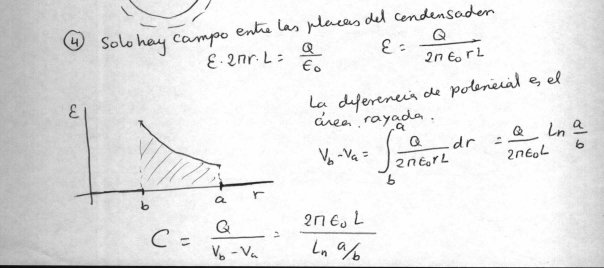 ④ Solo hay campo entre las placas del condensador
ε · 2πr · L = Q/ε₀    ε = Q/(2π ε₀ r L)
La diferencia de potencial es el
área rayada.
V_b - V_a = ∫_b^a Q/(2π ε₀ r L) dr = Q/(2π ε₀ L) Ln a/b
ε
b a r
C = Q/(V_b - V_a) = 2π ε₀ L/(Ln a/b)